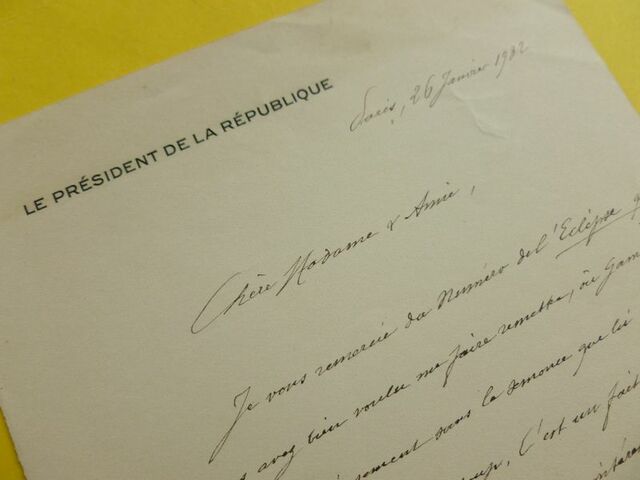 LE PRÉSIDENT DE LA RÉPUBLIQUE
Paris, 26 Janvier 1932
Chère Madame & Amie,
Je vous remercie du Numéro de l'Eclipse
avez bien voulu me faire remettre, où Gam
sur la semonce que lui
C'est un fait